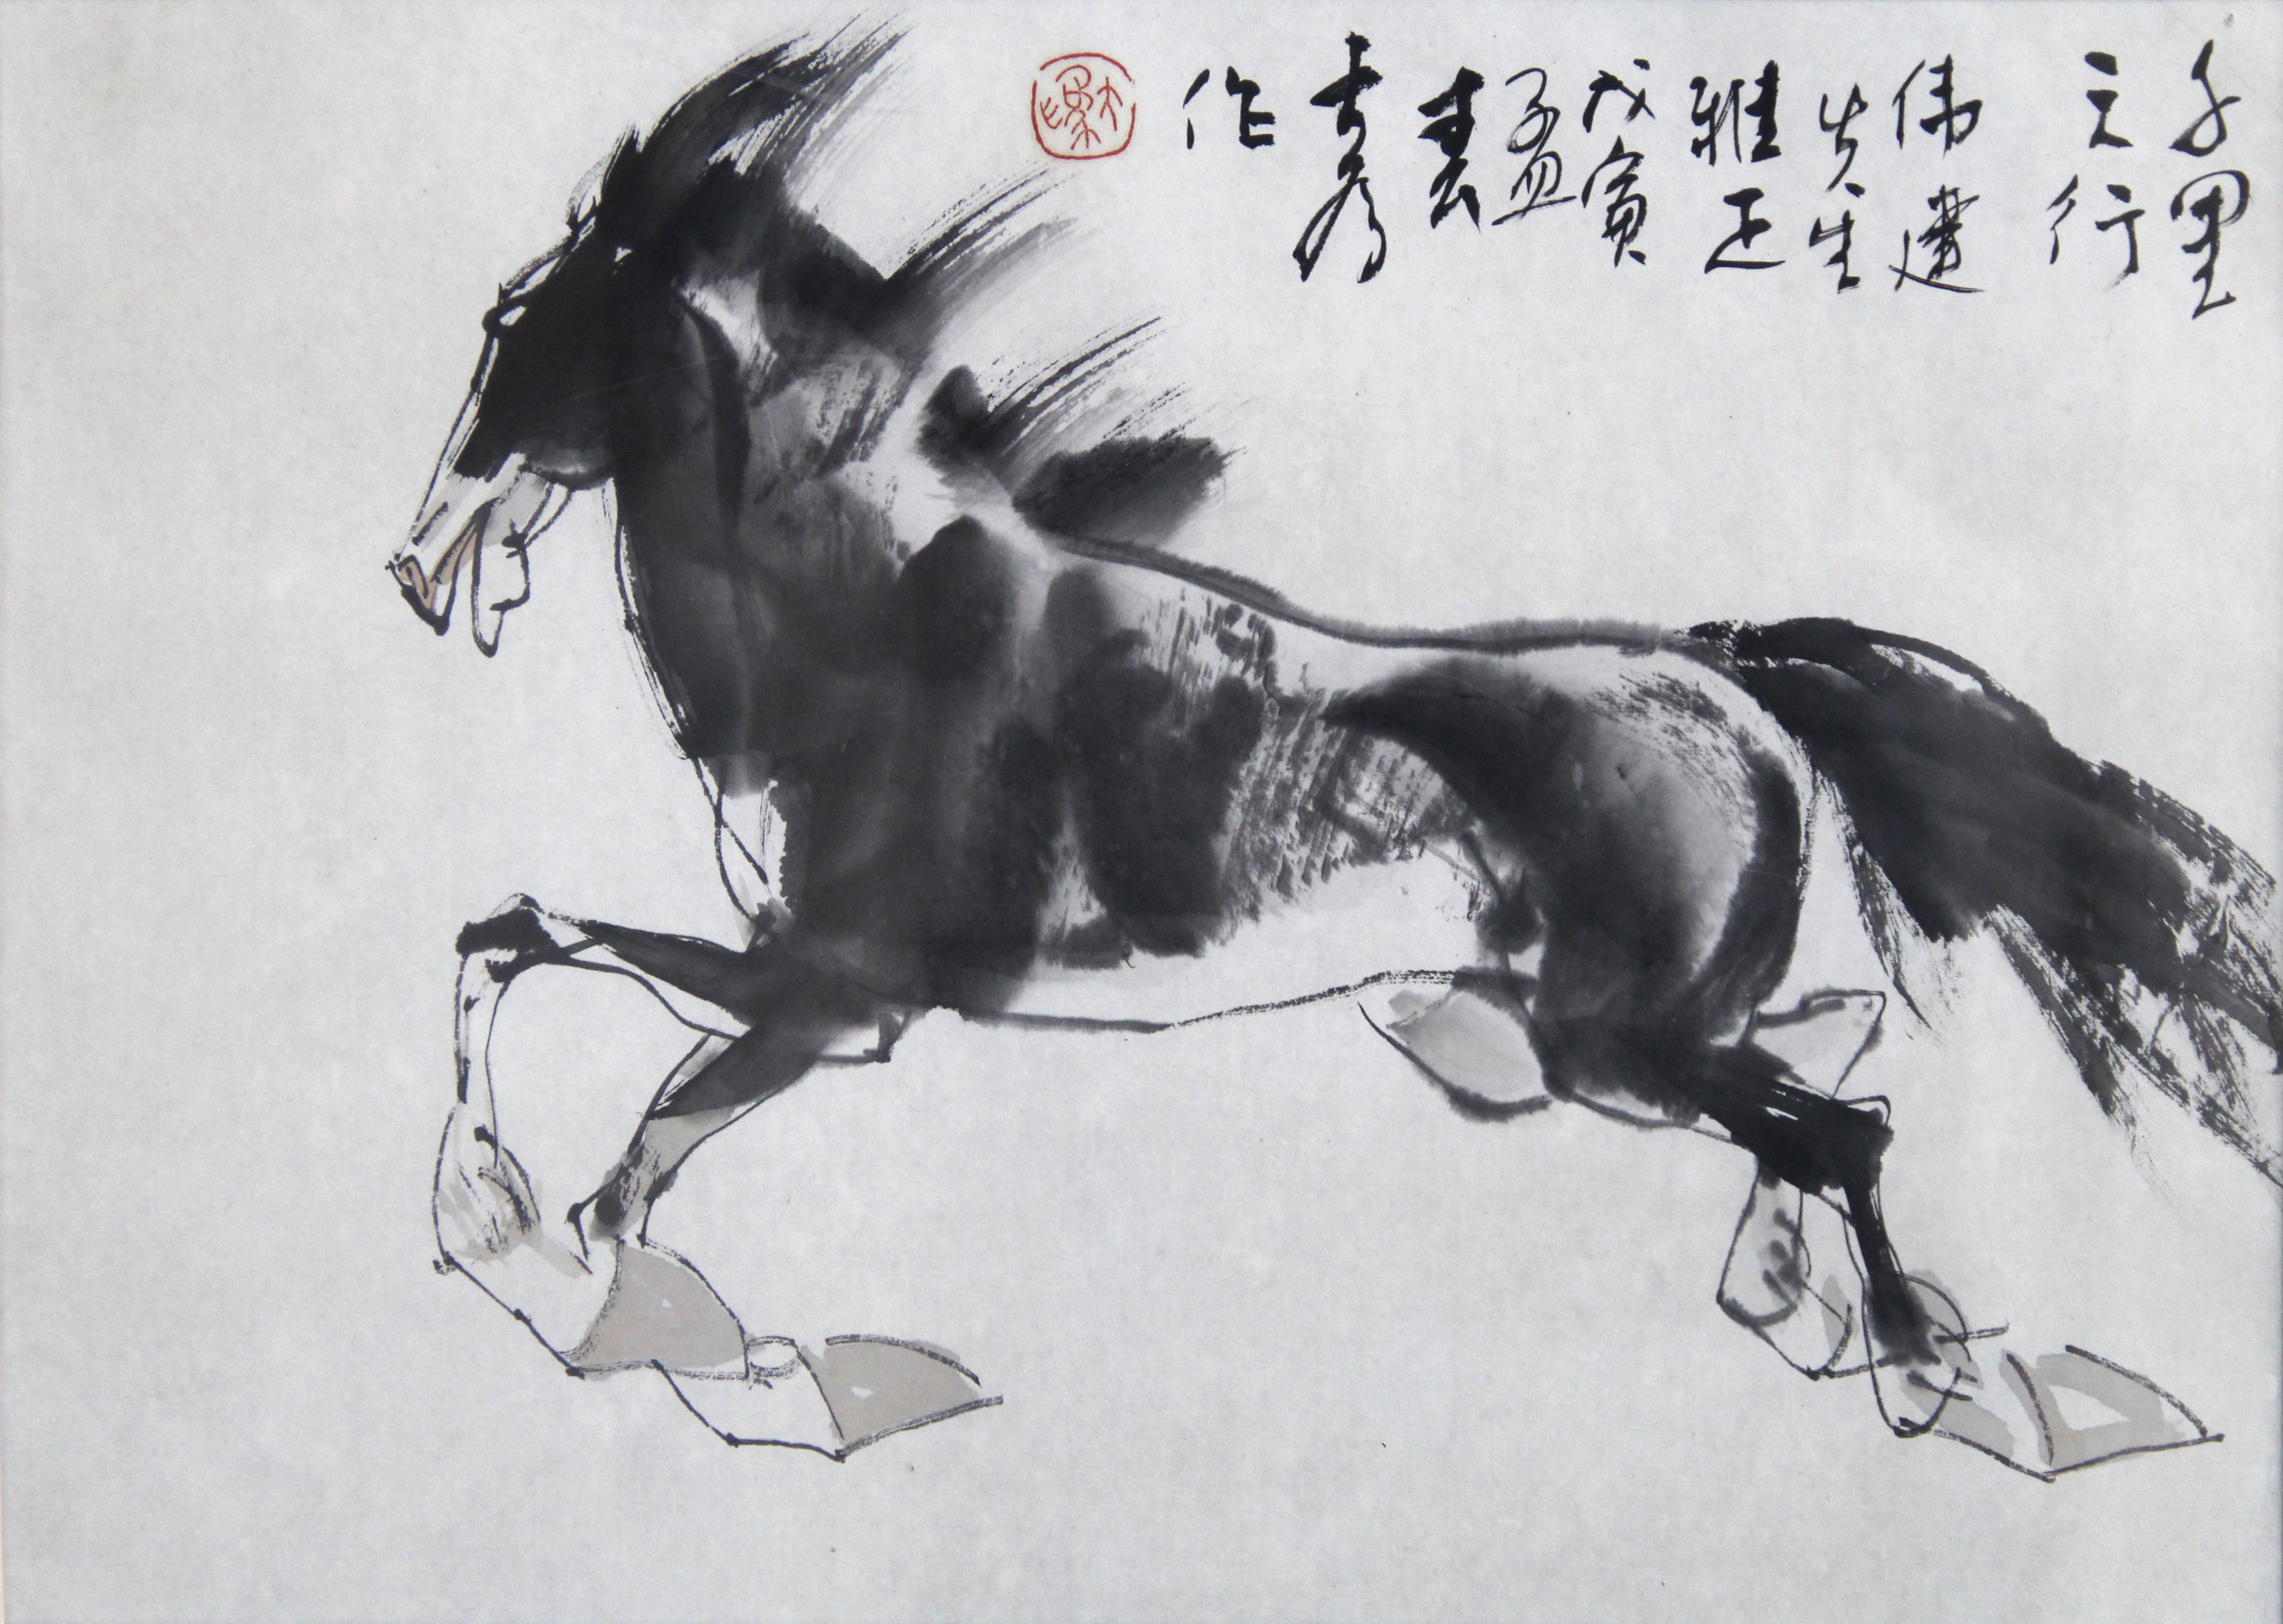 千里
之行
伟建
先生
雅正
戊寅
孟
春
作